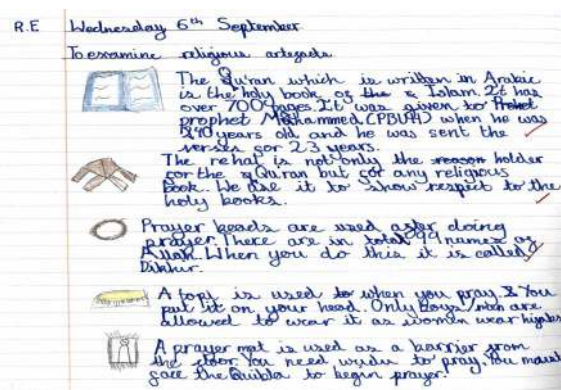 R.E Wednesday 6th September
To examine religious artefacts
The Qu'ran which is written in Arabic
is the holy book of the Islam. It has
over 700 pages. It was given to Prohet
prophet Mohammed (PBUH) when he was
40 years old and he was sent the
verses for 23 years.
The rehat is not only the reason holder
for the Qu'ran but for any religious
book. We use it to show respect to the
holy books.
Prayer beads are used after doing
prayer. There are in total 99 names of
Allah. When you do this it is called
Dikhur.
A topi is used to when you pray. You
put it on your head. Only boys/men are
allowed to wear it as women wear hijabs
A prayer mat is used as a barrier from
the floor. You need wudu to pray. You must
face the Quibla to begin prayer.